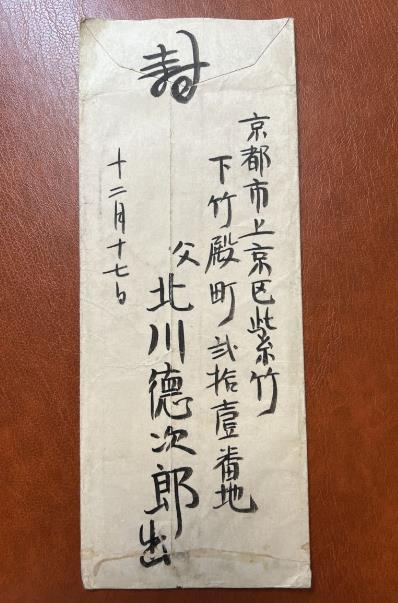 封
京都市上京区紫竹
下竹殿町弐拾壹番地
父 北川德次郎出
十二月十七日